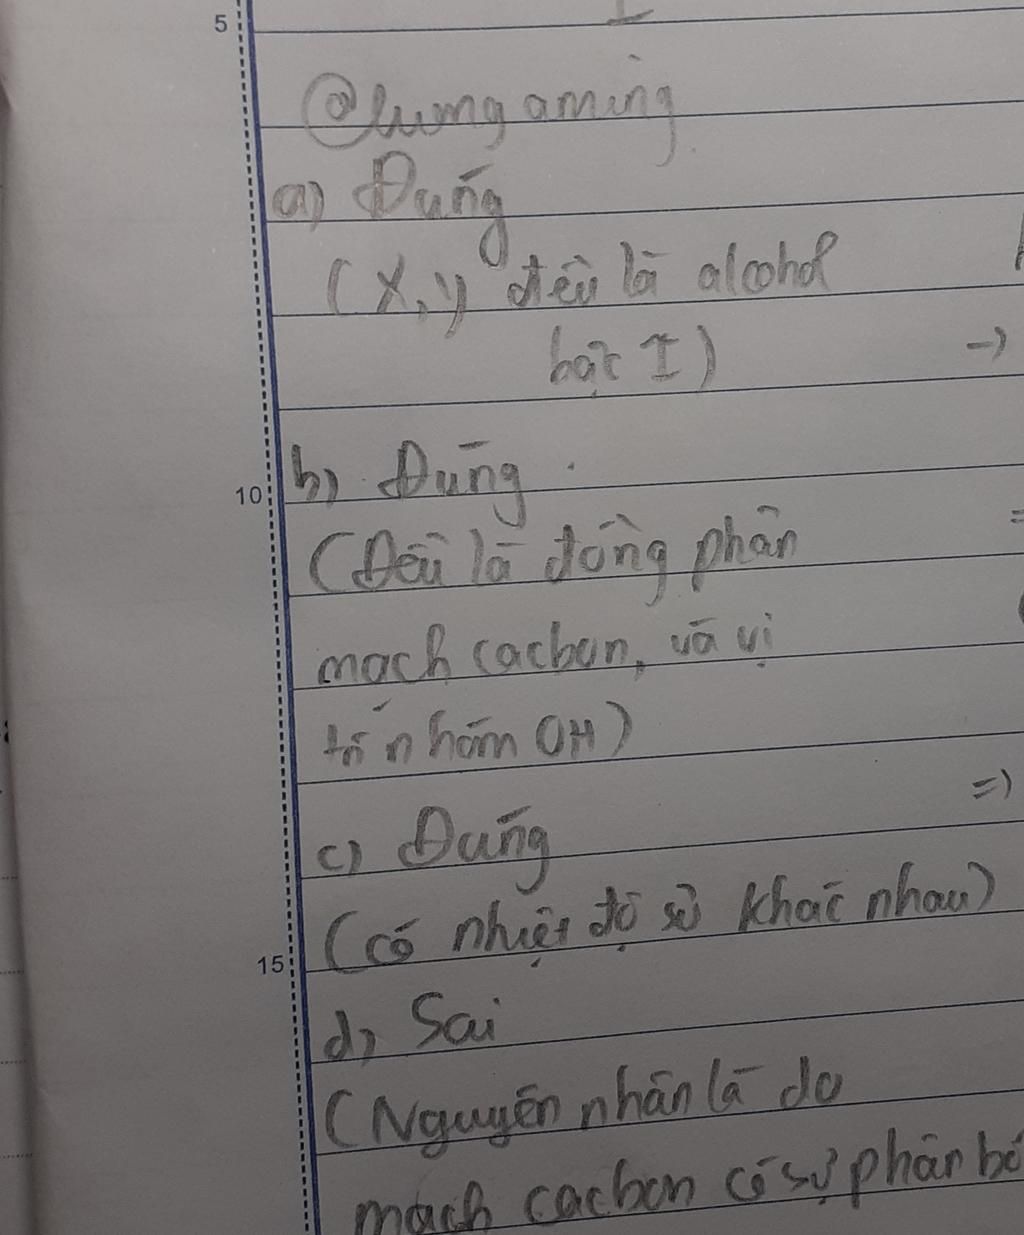 5
@lumgaming
a) Đúng
(X, Y đều là alcohol
bậc I)
->
b) Đúng
10
(Đều là đồng phân
mạch cacbon, và vị
trí nhóm OH)
=)
c) Đúng
(có nhiệt độ sôi khác nhau)
15
d) Sai
(Nguyên nhân là do
mạch cacbon có sự phân bố